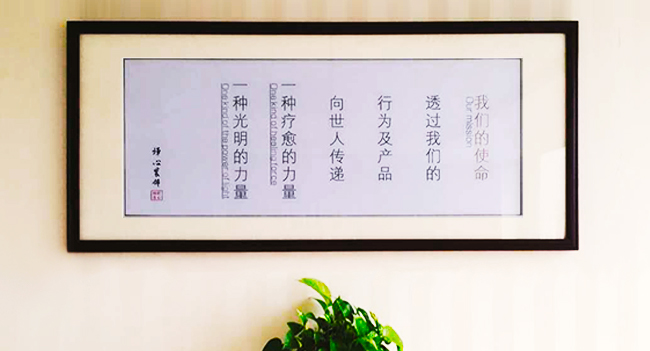 我们的使命
Our mission
透过我们的
行为及产品
向世人传递
一种疗愈的力量
One kind of healing force
一种光明的力量
One kind of the power of light